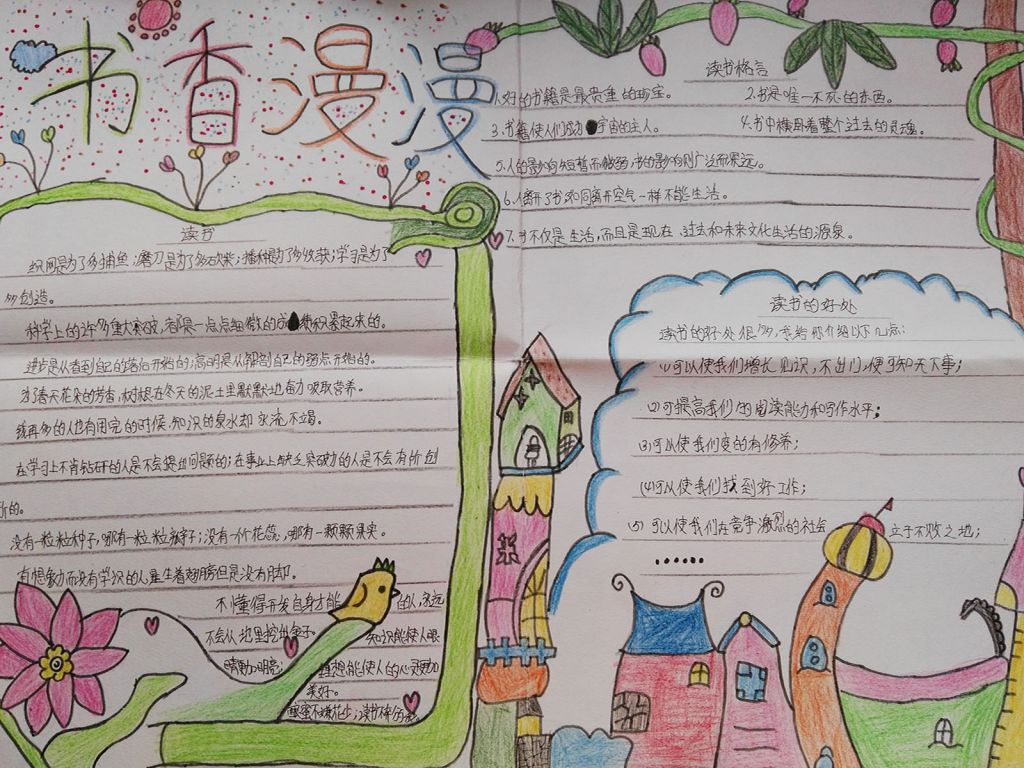 书香漫漫
读书格言
1.好的书籍是最贵重的珍宝。 2.书是唯一不死的东西。
3.书籍使人们成为宇宙的主人。 4.书中横卧着整个过去的灵魂。
5.人的影响短暂而微弱,书的影响则广泛而深远。
6.离开了书如同离开空气一样不能生活。
7.书不仅是生活,而且是现在、过去和未来文化生活的源泉。
读书
织网是为了多捕鱼;磨刀是为了多砍柴;播种是为了多收获;学习是为了
多创造。
科学上的许多重大突破,都是一点点细微的成积累起来的。
进步是从看到自己的落后开始的;高明是从解剖自己的弱点开始的。
为了春天花朵的芳香,树根在冬天的泥土里默默地奋力吸取营养。
钱再多的人也有用完的时候,知识的泉水却永流不竭。
在学习上不肯钻研的人是不会提出问题的;在事业上缺乏突破力的人是不会有所创
新的。
没有一粒粒种子,哪有一粒粒粮子;没有一个个花蕊,哪有一颗颗果实。
有想象力而没有学识的人是生着翅膀但是没有用却。
不懂得开发自身才能的人,永远
不会从地里挖出金子。 知识能使人眼
睛更加明亮; 理想能使人的心灵更加
美好。
酿蜜不嫌花少;读书不
读书的好处
读书的好处很多,我给你介绍以下几点:
(1)可以使我们增长见识,不出门,便可知天下事;
(2)可提高我们的阅读能力和写作水平;
(3)可以使我们变的有修养;
(4)可以使我们找到好工作;
(5)可以使我们在竞争激烈的社会立于不败之地;
······